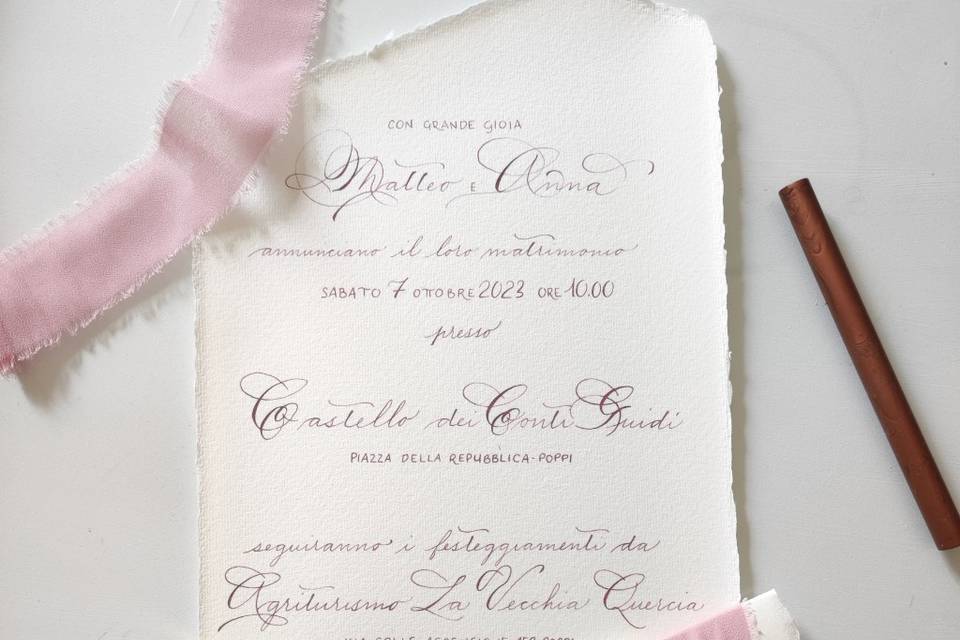 CON GRANDE GIOIA
Matteo E Anna
annunciano il loro matrimonio
SABATO 7 OTTOBRE 2023 ORE 10.00
presso
Castello dei Conti Guidi
PIAZZA DELLA REPUBBLICA - POPPI
seguiranno i festeggiamenti da
Agriturismo La Vecchia Quercia